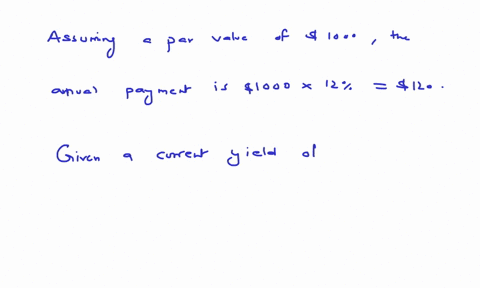 Assuming a par value of $1000, the
annual payment is $1000 × 12% = $120.
Given a current yield of